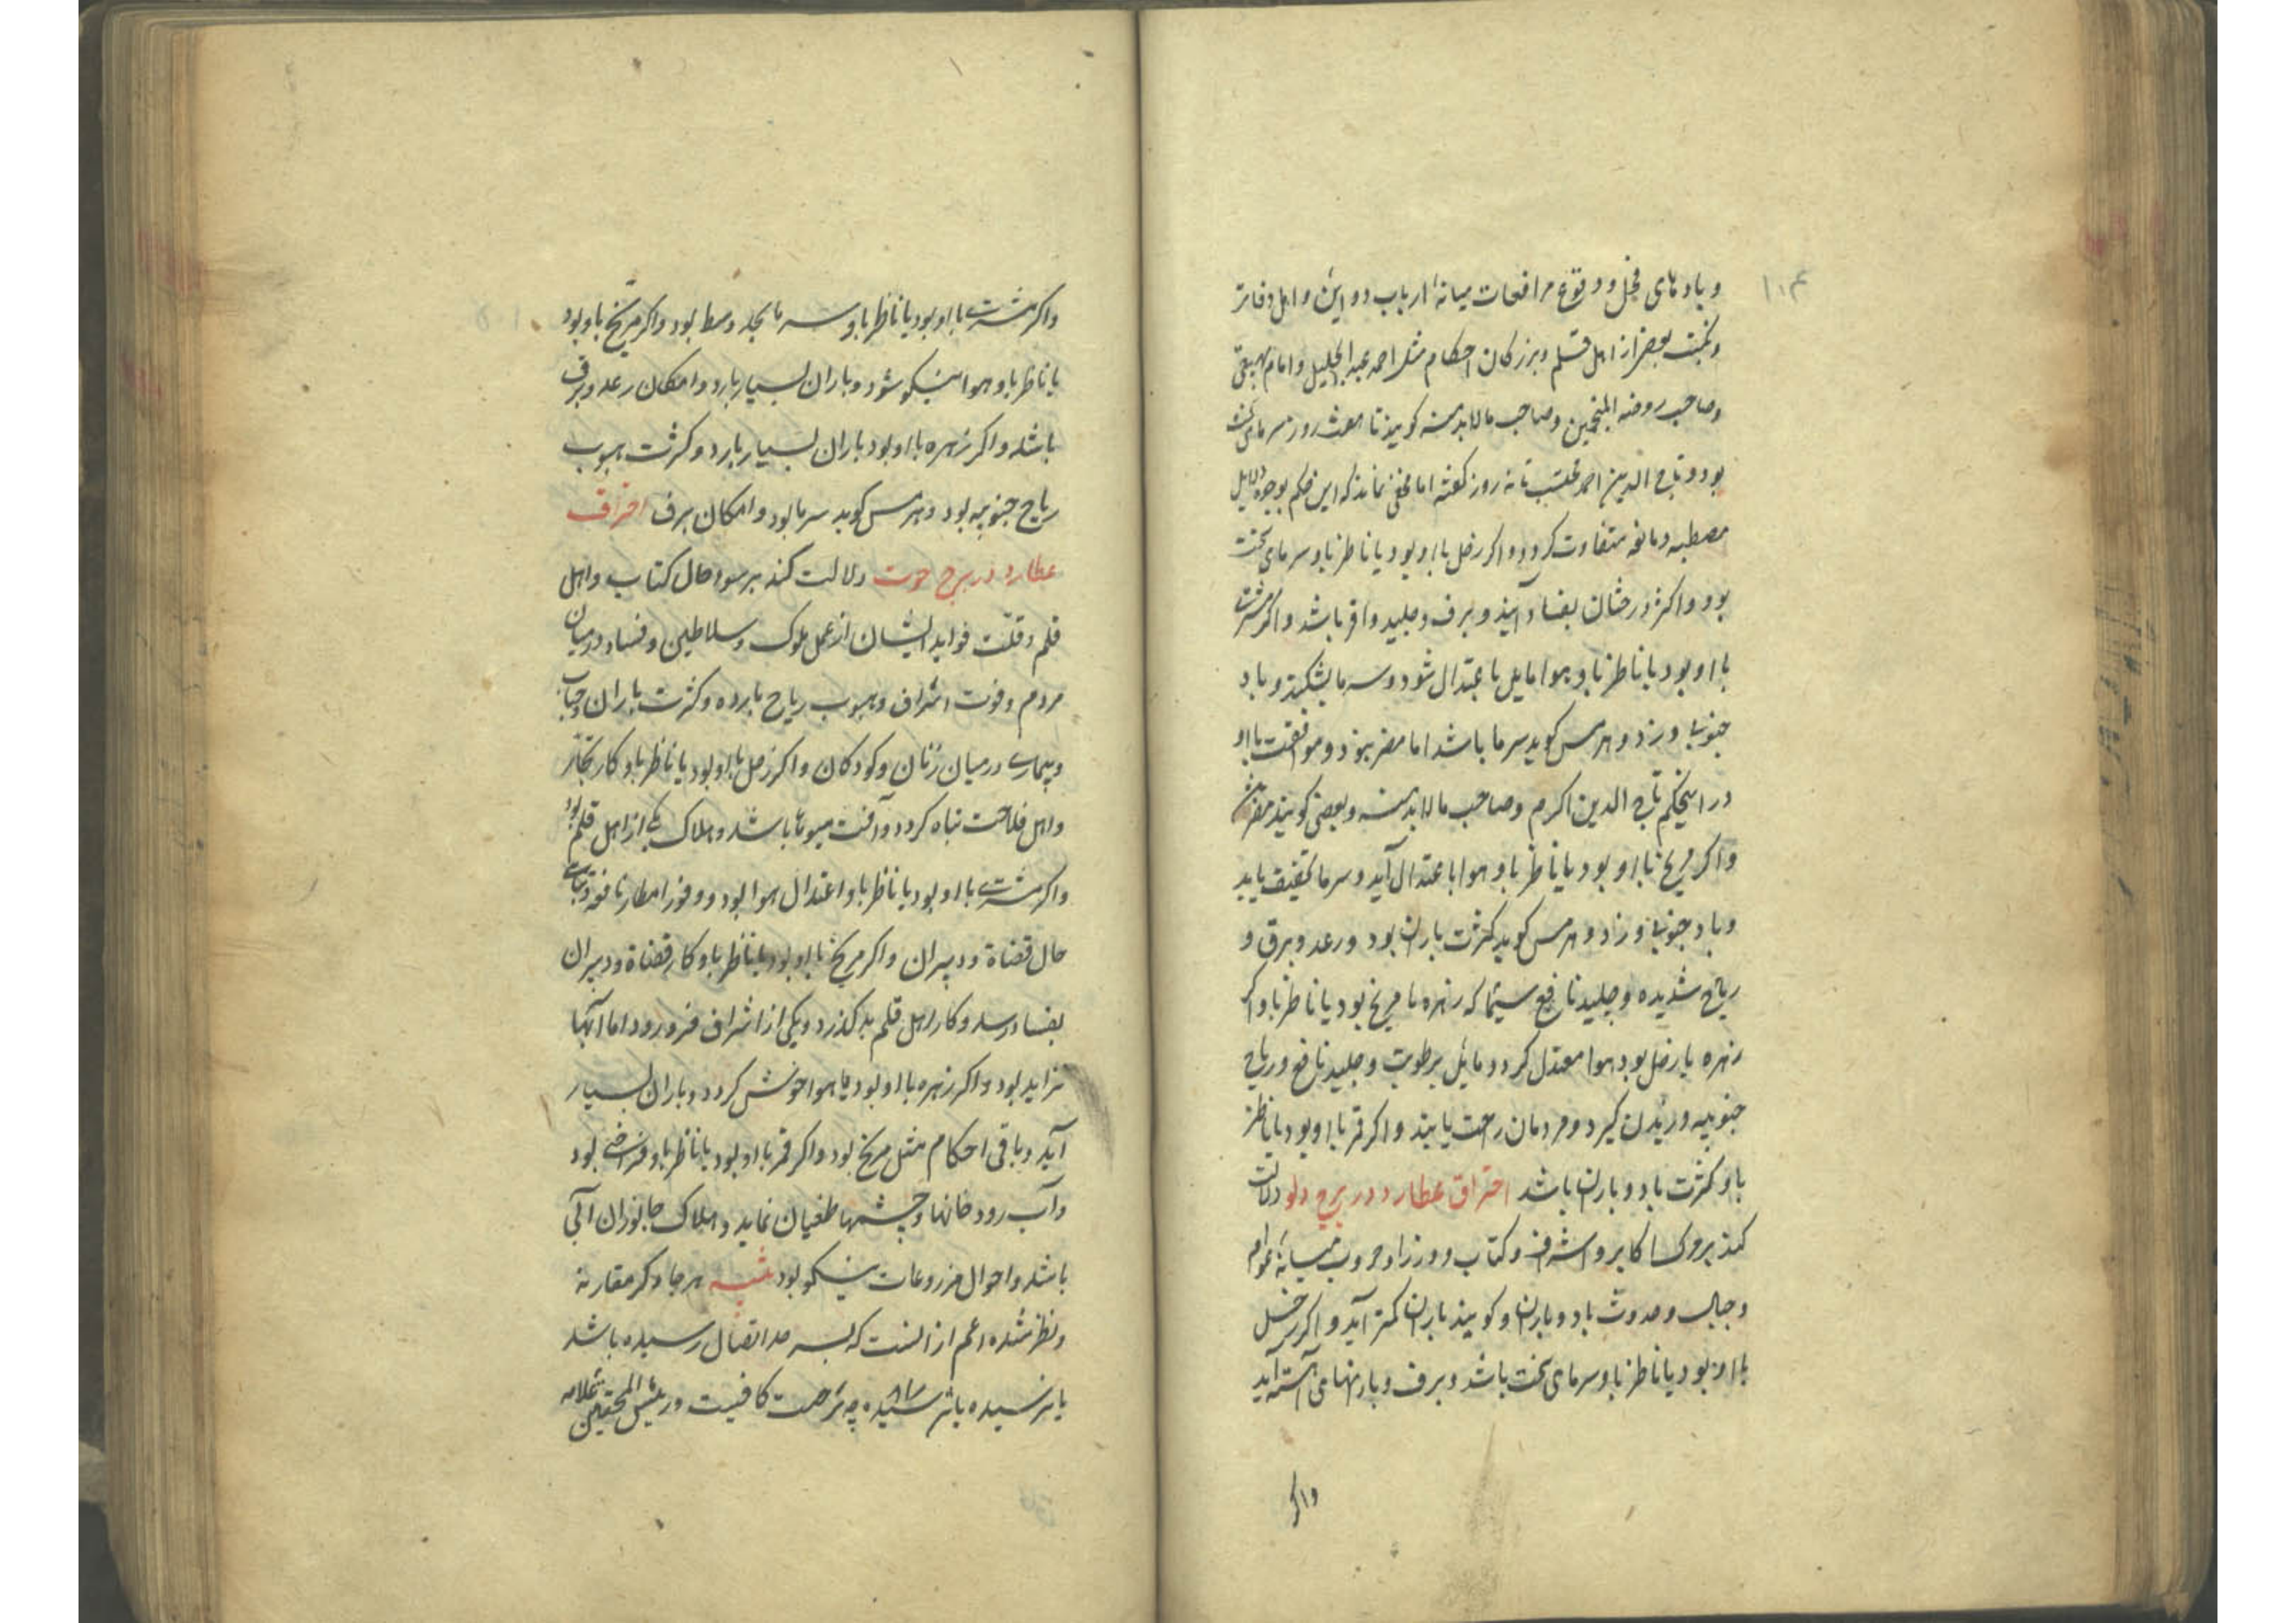 ۱۰۴
وبادهای مخل و وقوع مرافعات میانهٔ ارباب دواوین و اهل دفاتر
ونکبت بعضی از اهل قلم وبزرکان احکام مثل احمد عبدالجلیل و امام بیهقی
وصاحب روضه المنجمین وصاحب مالابدمنه کویند تا روز سرمای سخت
بود وتاج الدین احمد تا نه روز کفته اما مخفی نماند که این حکم بوجوه دلایل
متفاوت کردد واکر زحل بااو بود یا ناظر باو سرمای سخت
بود واکثر درختان بفساد آید وبرف وجلید وافر باشد واکر مشتری
بااو بود یا ناظر باو هوا مایل باعتدال شود وسرما بشکند وباد
جنوبی وزد وهرمس کوید سرما باشد اما مضر نبود وموافقت بااو
در اینحکم تاج الدین اکرم وصاحب مالابدمنه وبعضی کویند مضر
واکر مریخ بااو بود یا ناظر باو هوا باعتدال آید وسرما تخفیف یابد
وباد جنوبی وزاد وهرمس کوید کثرت باران بود ورعد وبرق و
ریاح شدیده وجلید نافع سیما که زهره با مریخ بود یا ناظر باو اکر
زهره با زحل بود هوا معتدل کردد ومایل برطوبت وجلید نافع وریاح
جنوبیه وزیدن کیرد ومردمان راحت یابند واکر قمر بااو بود یا ناظر
باو کثرت باد وباران باشد احتراق عطارد در برج دلو دلالت
کند بر اکابر واشراف وکتاب ووزرا وحروب میانهٔ عوام
وجبال وحدوث باد وباران وکویند باران کمتر آید واکر زحل
بااو بود یا ناظر باو سرمای سخت باشد وبرف وبارانهای آید
واکر
واکر مشتری بااو بود یا ناظر باو سرما بحد وسط بود واکر مریخ باو بود
یا ناظر باو هوا نیکو شود وباران بسیار بارد وامکان رعد وبرق
باشد واکر زهره بااو بود باران بسیار بارد وکثرت هبوب
ریاح جنوبیه بود وهرمس کوید سرما بود وامکان برف احتراق
عطارد در برج حوت دلالت کند بر سوء حال کتاب واهل
قلم وقلت فواید ایشان از عمل ملوک وسلاطین وفساد درمیان
مردم وفوت اشراف وهبوب ریاح بارده وکثرت باران
وبیماری درمیان زنان وکودکان واکر زحل بااو بود یا ناظر باو کار تجار
واهل فلاحت تباه کردد وآفت باشد وهلاک یکی از اهل قلم بود
واکر مشتری بااو بود یا ناظر باو اعتدال هوا بود ووفور امطار نافعه
حال قضاة ودبیران واکر مریخ بااو بود یا ناظر باو کار قضاة ودبیران
بفساد رسد وکار اهل قلم بد کذرد ویکی از اشراف فرو رود اما آبها
تزاید بود واکر زهره بااو بود هوا خوش کردد وباران بسیار
آید وباقی احکام مثل مریخ بود واکر قمر بااو بود یا ناظر باو فراخی بود
وآب رودخانها وچشمها طغیان نماید وهلاک جانوران آبی
باشد واحوال مزروعات نیکو بود تنبیه هرجا ذکر مقارنه
ونظر شده اعم از انست که بسرحد اتصال رسیده باشد
یا نرسیده باشد چه کافیست ورئیس المحققین علامه